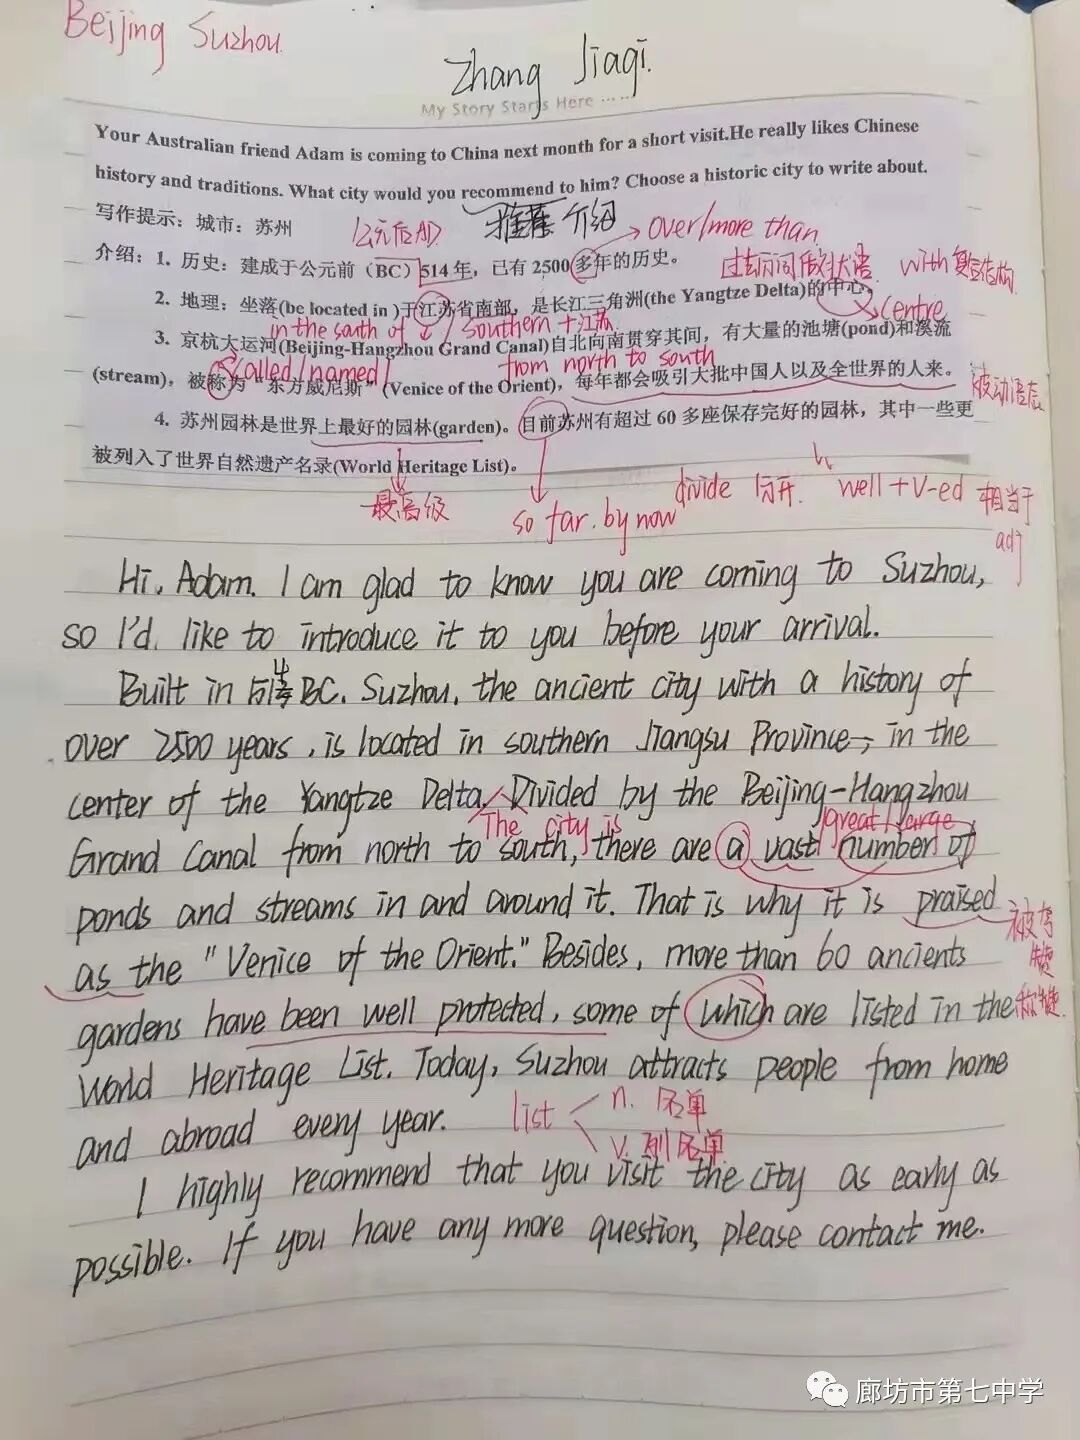 Beijing Suzhou.
Zhang Jiaqi.
My Story Starts Here ······
Your Australian friend Adam is coming to China next month for a short visit.He really likes Chinese
history and traditions. What city would you recommend to him? Choose a historic city to write about.
写作提示：城市：苏州
公元后AD
推荐 介绍
over/more than
介绍：1. 历史：建成于公元前（BC）514年，已有2500多年的历史。
过去分词做状语
with复合结构
2. 地理：坐落(be located in )于江苏省南部，是长江三角洲(the Yangtze Delta)的中心。
centre
in the south of
southern + 江苏
3. 京杭大运河(Beijing-Hangzhou Grand Canal)自北向南贯穿其间，有大量的池塘(pond)和溪流
called/named
from north to south
(stream)，被称为“东方威尼斯”(Venice of the Orient)，每年都会吸引大批中国人以及全世界的人来。
被动语态
4. 苏州园林是世界上最好的园林(garden)。目前苏州有超过60多座保存完好的园林，其中一些更
被列入了世界自然遗产名录(World Heritage List)。
最高级
so far. by now
divide 分开.
well + V-ed 相当于
adj
Hi, Adam. I am glad to know you are coming to Suzhou,
so I'd like to introduce it to you before your arrival.
Built in 514 BC. Suzhou, the ancient city with a history of
over 2500 years, is located in southern Jiangsu Province, in the
center of the Yangtze Delta. Divided by the Beijing-Hangzhou
The city is
great/large
Grand Canal from north to south, there are a vast number of
ponds and streams in and around it. That is why it is praised
as the "Venice of the Orient." Besides, more than 60 ancients
gardens have been well protected, some of which are listed in the
World Heritage List. Today, Suzhou attracts people from home
and abroad every year.
list
n. 名单
v. 列名单
I highly recommend that you visit the city as early as
possible. If you have any more question, please contact me.
廊坊市第七中学